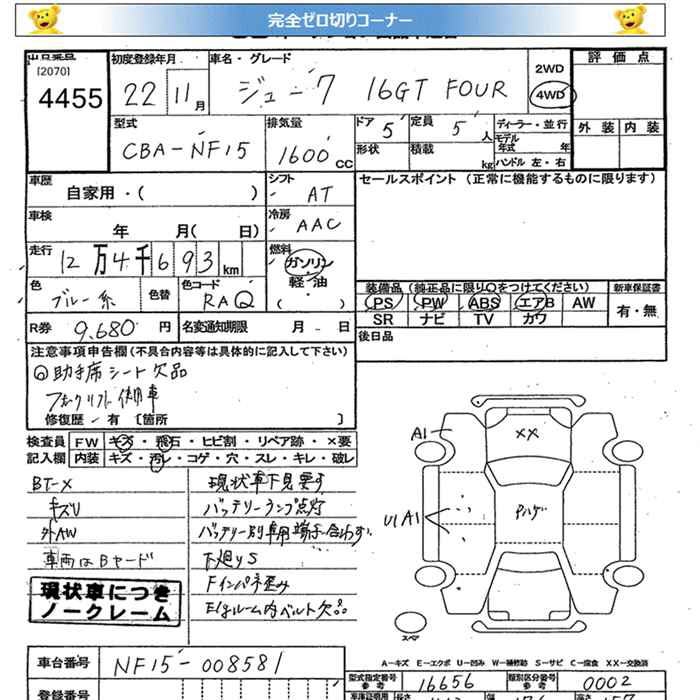 完全ゼロ切りコーナー
出品番号 初度登録年月 車名・グレード 評価点
[2070] 4455 22 11月 ジューク 16GT FOUR 2WD 4WD
型式 排気量 ドア 5 定員 5人 ディーラー・並行 外装 内装
CBA-NF15 1600cc 形状 積載 kg モデル年式 年 ハンドル 左・右
車歴 自家用・( ) シフト AT セールスポイント (正常に機能するものに限ります)
車検 年 月( 日) 冷房 AAC
走行 12万4千693km 燃料 ガソリン 軽・油 ( )
色 ブルー系 色替 色コード RAQ 装備品(純正品に限り○をつけてください) 新車保証書
PS PW ABS エアB AW 有・無
R券 9,680円 名変通知期限 月 日 SR ナビ TV カワ
注意事項申告欄(不具合内容等は具体的に記入して下さい) 後日品
助手席シート欠品
フォークリフト使用車
修復歴/有 [箇所 ]
検査員 FW キズ・飛石・ヒビ割・リペア跡・×要
記入欄 内装 キズ・汚レ・コゲ・穴・スレ・キレ・破レ
BT-X 現状車下見要す
キズU バッテリーランプ点灯
外AW バッテリー別車用端子合わず
車両はBヤード 下廻りS
現状車につき Fインパネ歪み
ノークレーム Egルーム内ベルト欠品
A1 XX
U1 A1
スペア
A-キズ E-エクボ U-凹み W-補修跡 S-サビ C-腐食 XX-交換済
車台番号 NF15-008581 型式指定番号 参考 16656 類別区分番号 参考 0002
登録番号